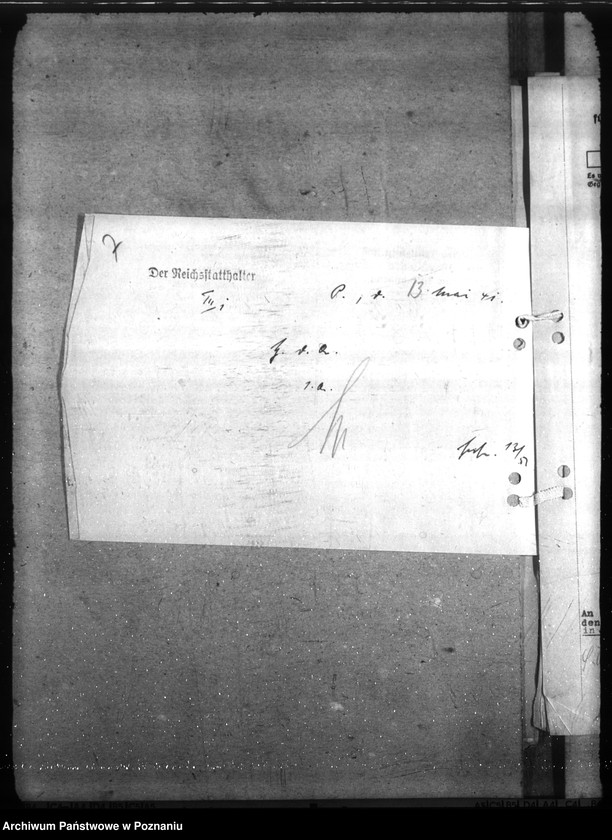 Der Reichsstatthalter
III i
P., d. 13 Mai 41.
Z. d. A.
I. A.
An
den
in
Archiwum Państwowe w Poznaniu